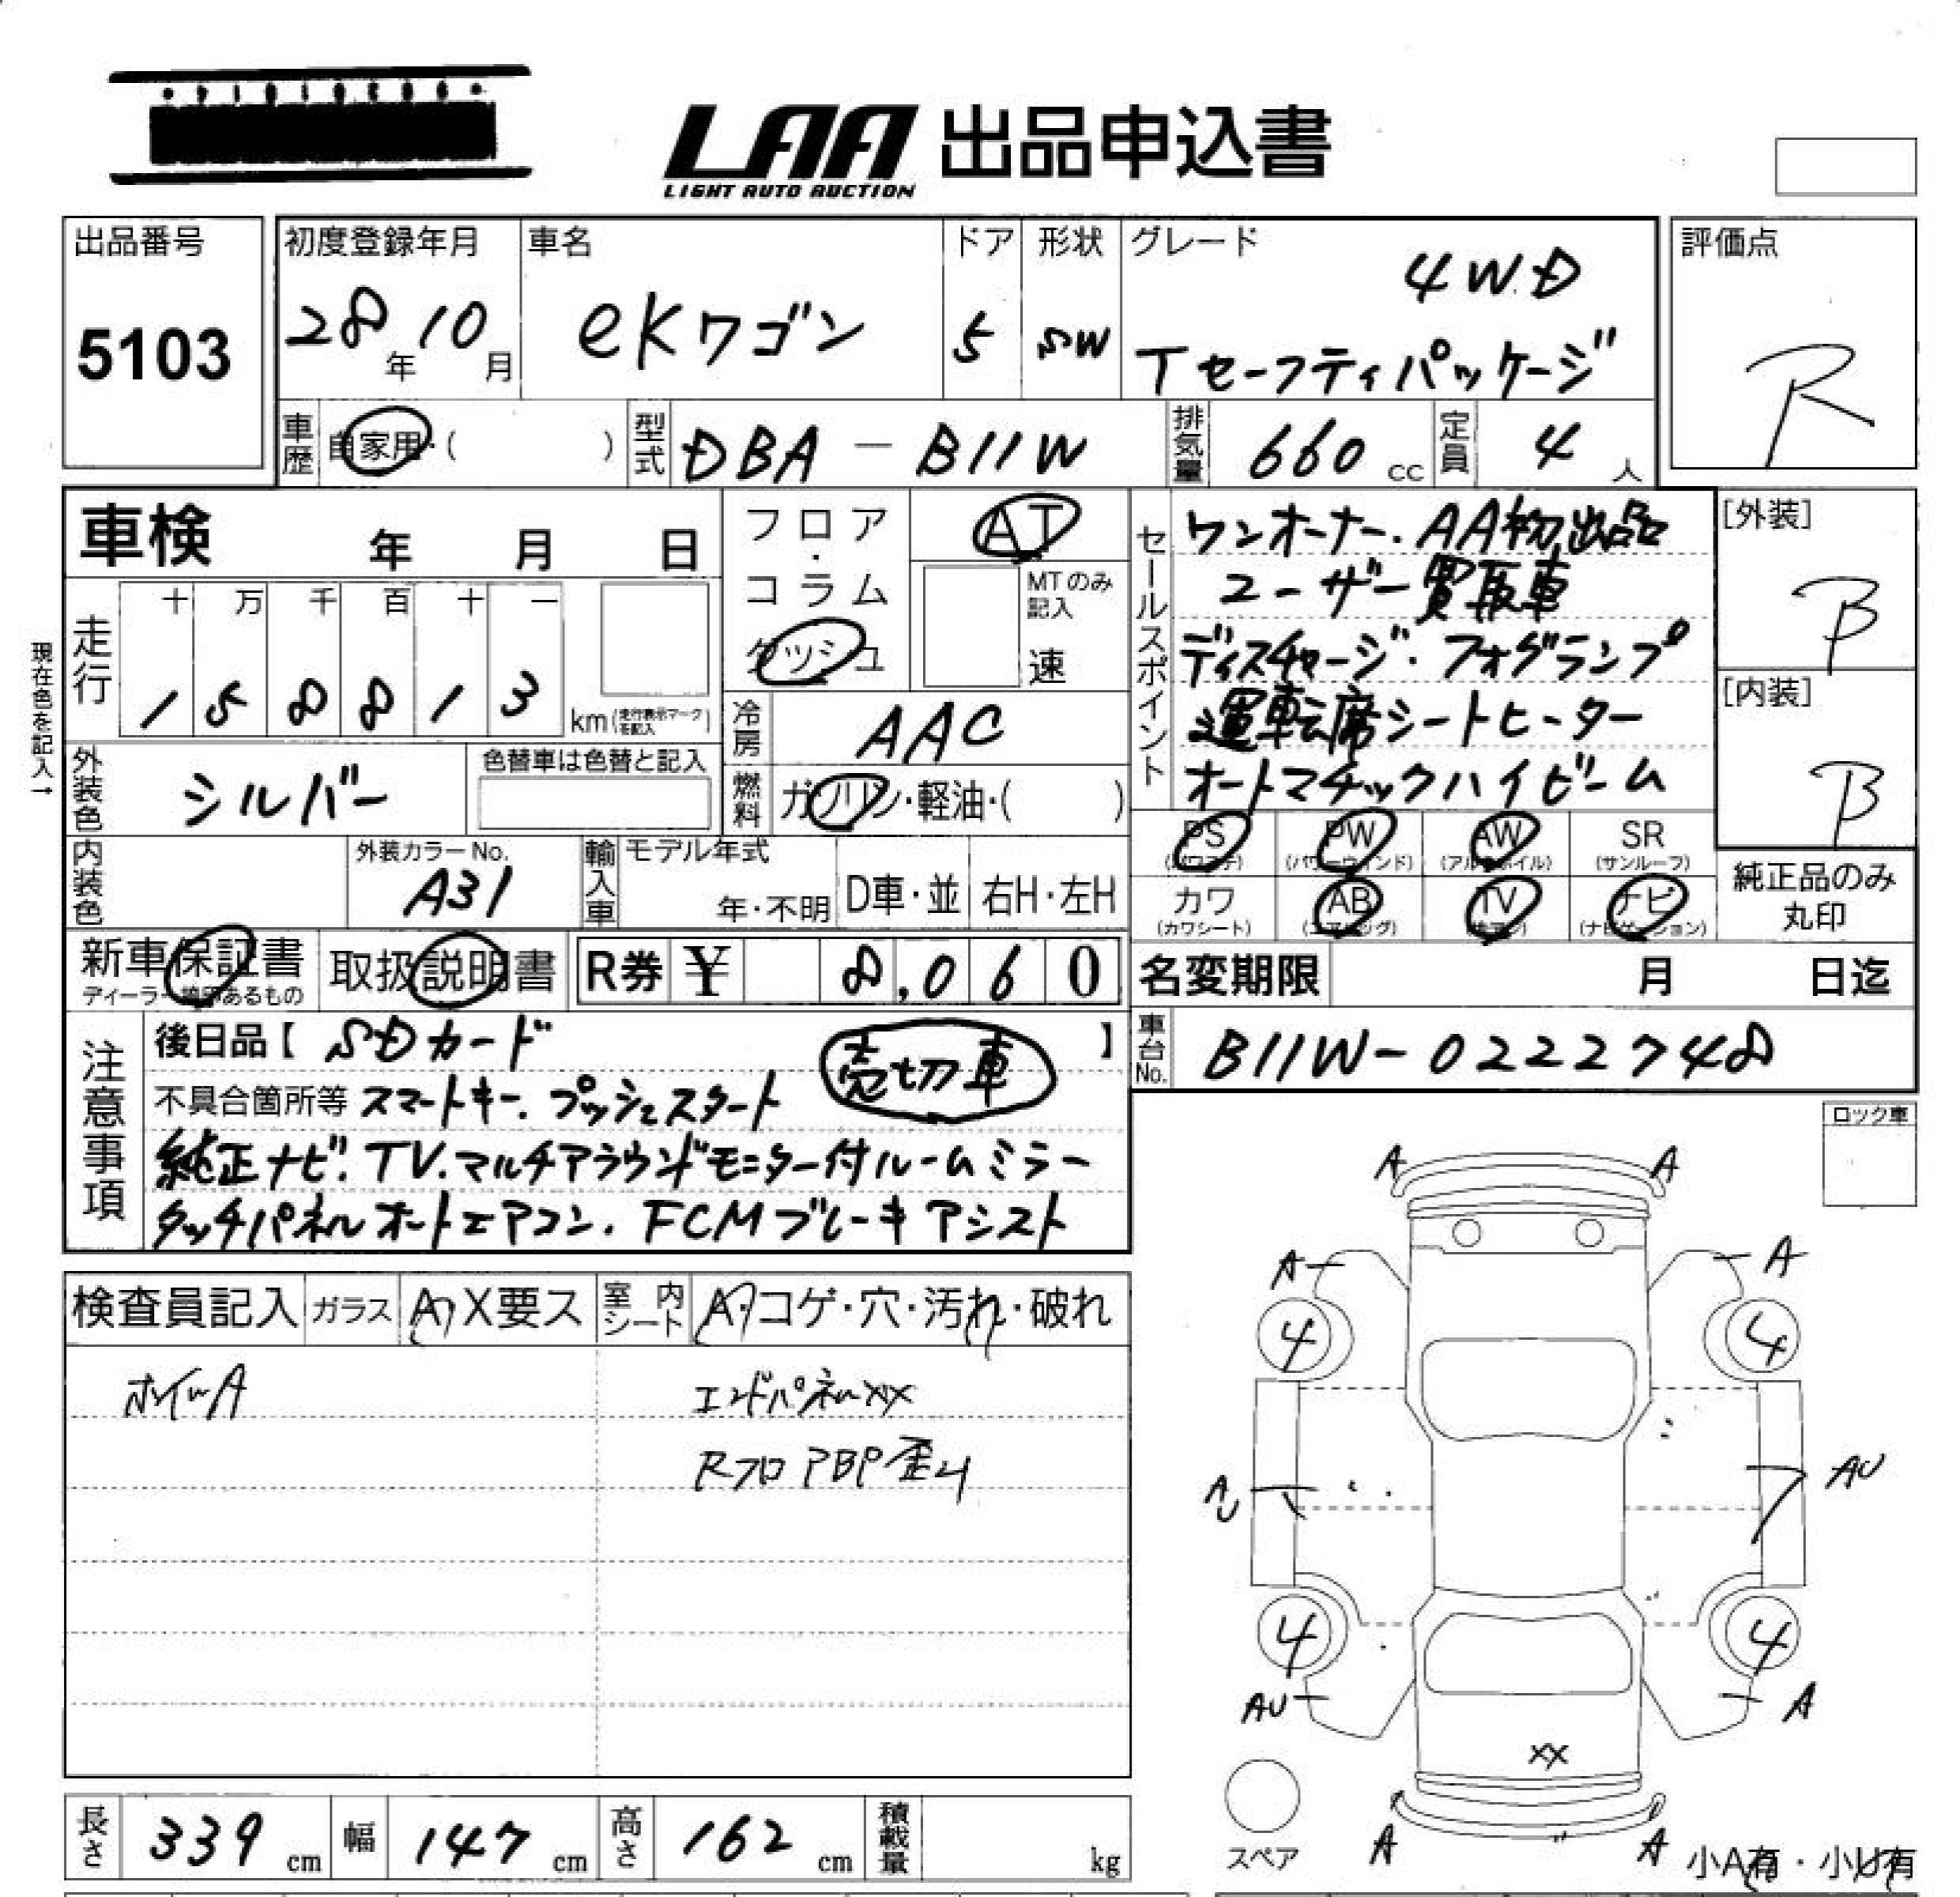 LAA 出品申込書
LIGHT AUTO AUCTION
出品番号
5103
初度登録年月
28年10月
車名
eKワゴン
ドア
5
形状
SW
グレード
4WD
Tセーフティパッケージ
評価点
R
車歴 自家用・( )
型式 DBA-B11W
排気量 660 cc
定員 4 人
車検 年 月 日
走行
十 万 千 百 十 一
1 5 8 8 1 3
km (走行表示マークを記入)
現在色を記入→
フロア・コラム
ダッシュ
AT
MTのみ記入
速
冷房 AAC
燃料 ガソリン・軽油・( )
外装色 シルバー
色替車は色替と記入
内装色
外装カラーNo.
A31
輸入車
モデル年式
年・不明
D車・並
右H・左H
セールスポイント
ワンオーナー.AA初出品
ユーザー買取車
ディスチャージ・フォグランプ
運転席シートヒーター
オートマチックハイビーム
[外装]
B
[内装]
B
PS (パワステ)
PW (パワーウィンド)
AW (アルミホイル)
SR (サンルーフ)
カワ (カワシート)
AB (エアバッグ)
TV
ナビ (ナビゲーション)
純正品のみ
丸印
新車保証書
ディーラー捺印あるもの
取扱説明書
R券 ¥ 8,060
名変期限 月 日迄
車台No. B11W-0222748
注意事項
後日品【 SDカード 】
売切車
不具合箇所等 スマートキー.プッシュスタート
純正ナビ.TV.マルチアラウンドモニター付ルームミラー
タッチパネルオートエアコン.FCMブレーキアシスト
ロック車
検査員記入
ガラス A・X要ス
室内シート A・コゲ・穴・汚れ・破れ
ホイールA
エンドパネルXX
Rフロ PBP歪み
A A
A A
4 4
AU AU
4 4
AU A
XX
スペア
A A
小A有・小U有
長さ 339 cm
幅 147 cm
高さ 162 cm
積載量 kg